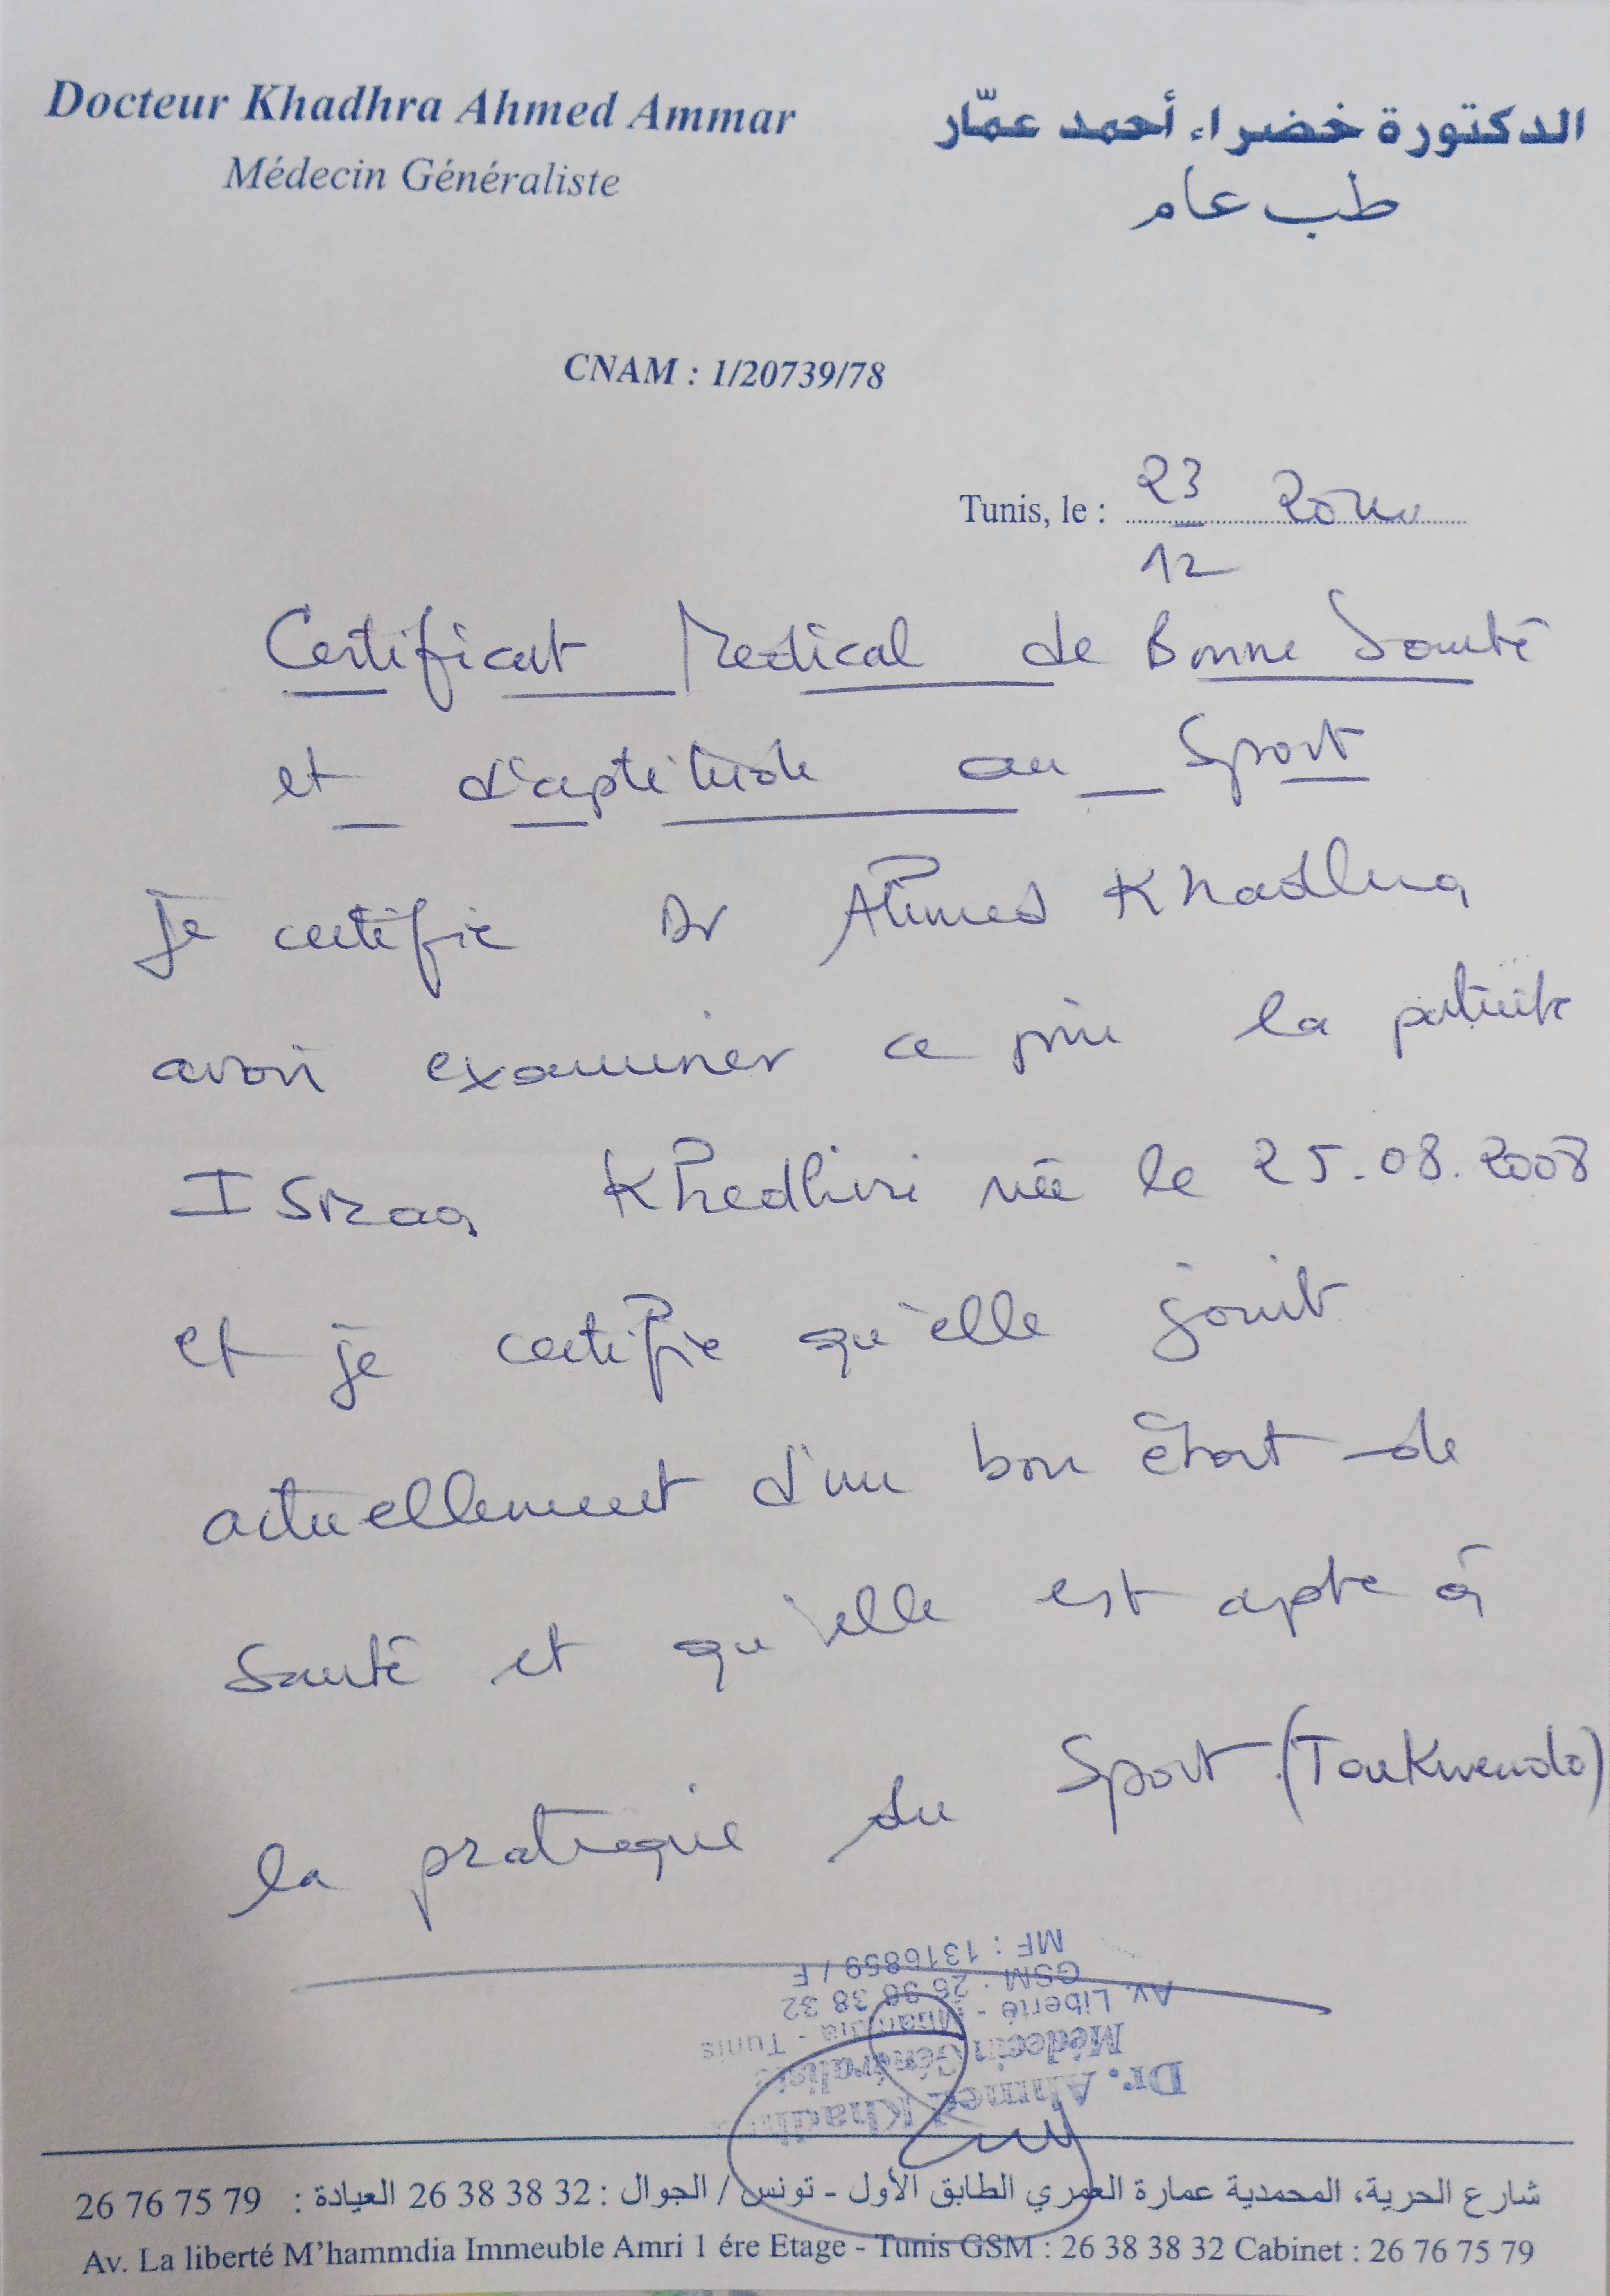 Docteur Khadhra Ahmed Ammar
Médecin Généraliste
الدكتورة خضراء أحمد عمّار
طب عام
CNAM : 1/20739/78
Tunis, le : 23
12
Certificat Medical de Bonne Santé
et d'aptitude au Sport
Je certifie Dr Ahmed Khadhra
avoir examiner ce jour la patiente
ISRaa Khedhiri née le 25.08.2008
et je certifie qu'elle jouit
actuellement d'un bon état de
Santé et qu'elle est apte à
la pratique du Sport (Taekwendo)
MF : 1316859 / F
GSM : 26 38 38 32
Av. Liberté - Mhamdia - Tunis
Médecin Généraliste
Dr. Ahmed Khadhra
شارع الحرية، المحمدية عمارة العمري الطابق الأول - تونس / الجوال : 32 38 38 26 العيادة : 79 75 76 26
Av. La liberté M'hammdia Immeuble Amri 1 ére Etage - Tunis GSM : 26 38 38 32 Cabinet : 26 76 75 79